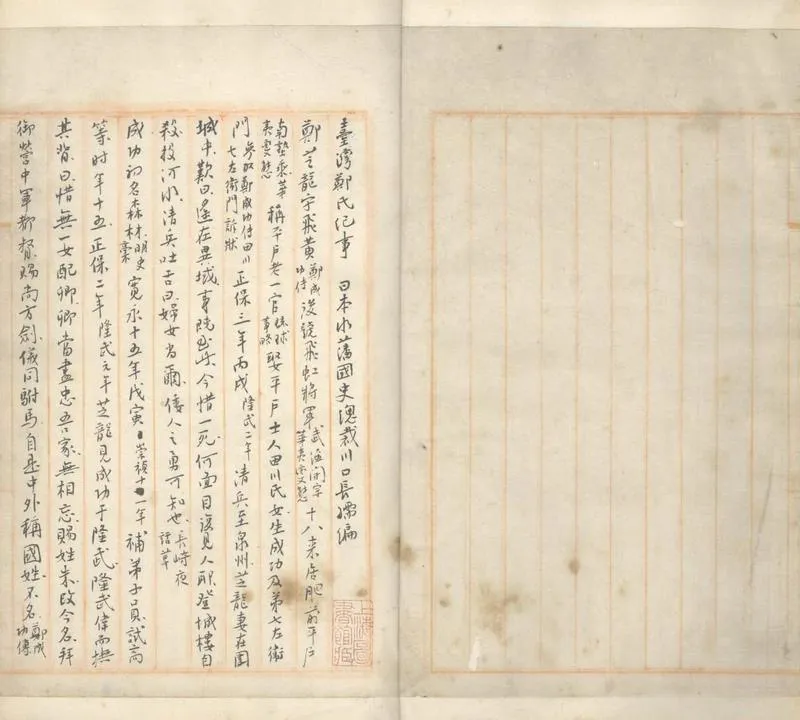 臺灣鄭氏紀事 日本水藩國史總裁川口長孺編
鄭芝龍字飛黃鄭成功傳後號飛虹將軍武備開宗華夷變態十八來居肥前平戶
南塾乘華夷變態稱平戶老一官琉球事略娶平戶士人田川氏女生成功及弟七左衛
門參取鄭成功傳田川七左衛門訴狀正保三年丙戌隆武二年清兵至泉州芝龍妻在圍
城中歎曰遠在異域事既至此今惜一死何面目復見人耶登城樓自
殺投河水清兵吐舌曰婦女尚爾倭人之勇可知也長崎夜話草
成功初名森林明史藁寬永十五年戊寅崇禎十一年補弟子員試高
等時年十五正保二年隆武元年芝龍見成功于隆武隆武偉而撫
其背曰惜無一女配卿卿當盡忠吾家無相忘賜姓朱改今名拜
御營中軍都督賜尚方劍儀同駙馬自是中外稱國姓不名鄭成功傳
上海圖書館藏